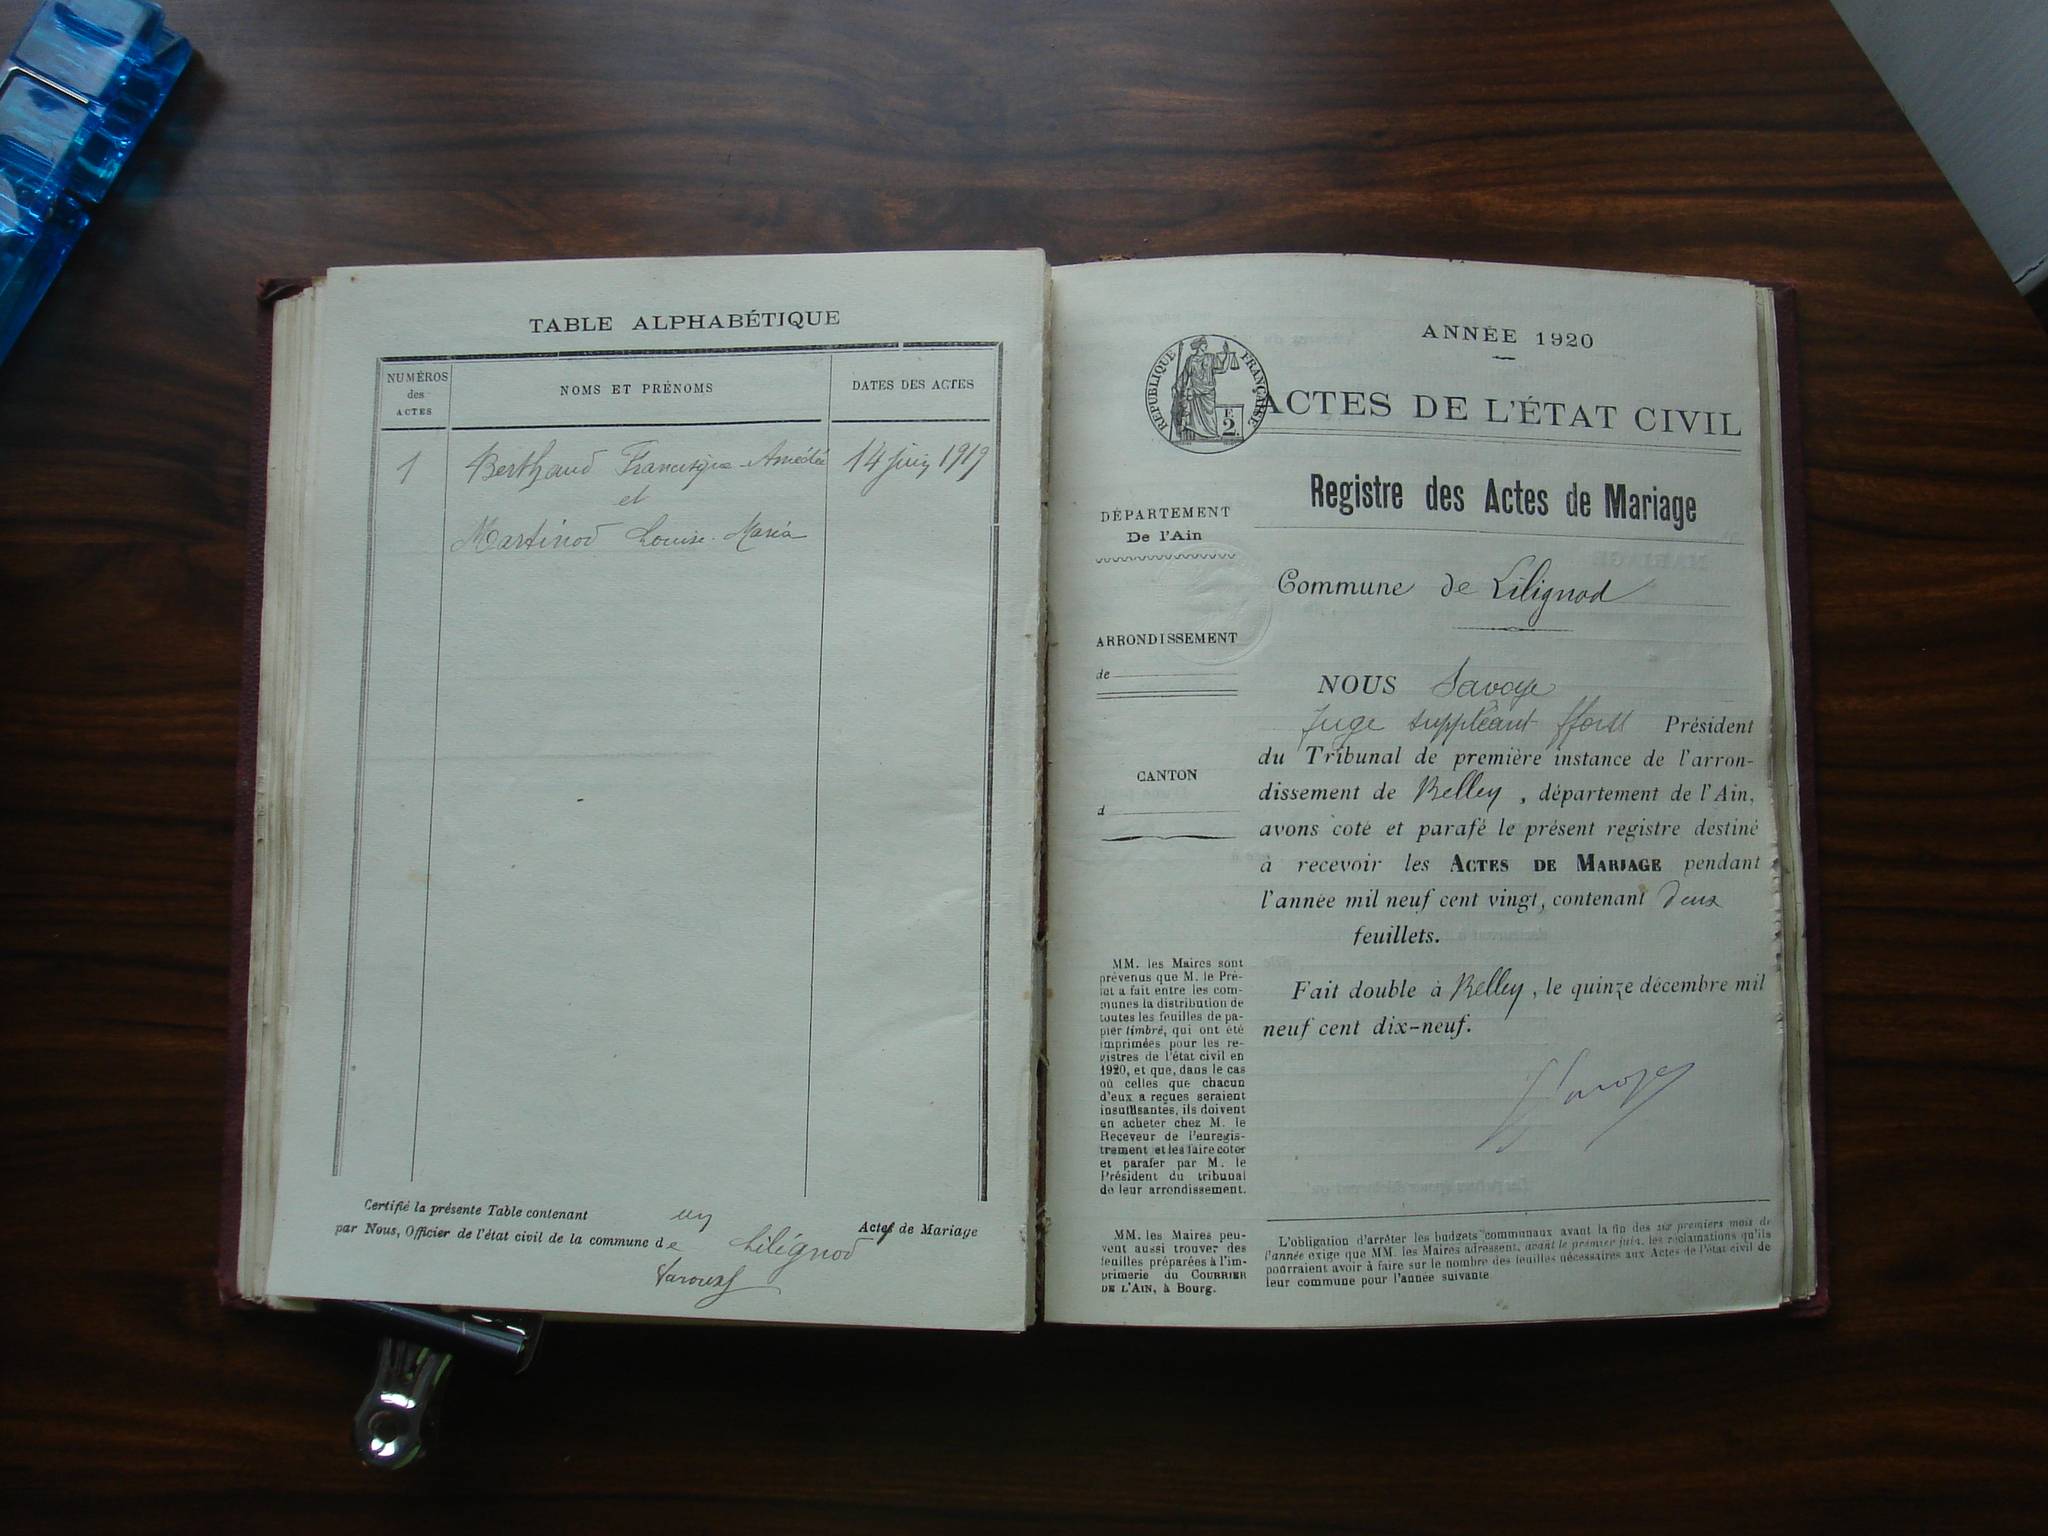 TABLE ALPHABÉTIQUE
NUMÉROS
des
ACTES
NOMS ET PRÉNOMS
DATES DES ACTES
1
Berthaud Francisque Amédée
14 juin 1919
et
Martinod Louise Maria
Certifié la présente Table contenant un Actes de Mariage
par Nous, Officier de l'état civil de la commune de Lilignod
ANNÉE 1920
RÉPUBLIQUE FRANÇAISE
E
2.
ACTES DE L'ÉTAT CIVIL
Registre des Actes de Mariage
DÉPARTEMENT
De l'Ain
Commune de Lilignod
ARRONDISSEMENT
de
CANTON
d
NOUS Savoye
Juge suppléant Président
du Tribunal de première instance de l'arron-
dissement de Belley, département de l'Ain,
avons coté et parafé le présent registre destiné
à recevoir les ACTES DE MARIAGE pendant
l'année mil neuf cent vingt, contenant deux
feuillets.
Fait double à Belley, le quinze décembre mil
neuf cent dix-neuf.
Savoye
MM. les Maires sont
prévenus que M. le Pré-
fet a fait entre les com-
munes la distribution de
toutes les feuilles de pa-
pier timbré, qui ont été
imprimées pour les re-
gistres de l'état civil en
1920, et que, dans le cas
où celles que chacun
d'eux a reçues seraient
insuffisantes, ils doivent
en acheter chez M. le
Receveur de l'enregis-
trement et les faire coter
et parafer par M. le
Président du tribunal
de leur arrondissement.
MM. les Maires peu-
vent aussi trouver des
feuilles préparées à l'im-
primerie du COURRIER
DE L'AIN, à Bourg.
L'obligation d'arrêter les budgets communaux avant la fin des six premiers mois de
l'année exige que MM. les Maires adressent, avant le premier juin, les réclamations qu'ils
pourraient avoir à faire sur le nombre des feuilles nécessaires aux Actes de l'état civil de
leur commune pour l'année suivante